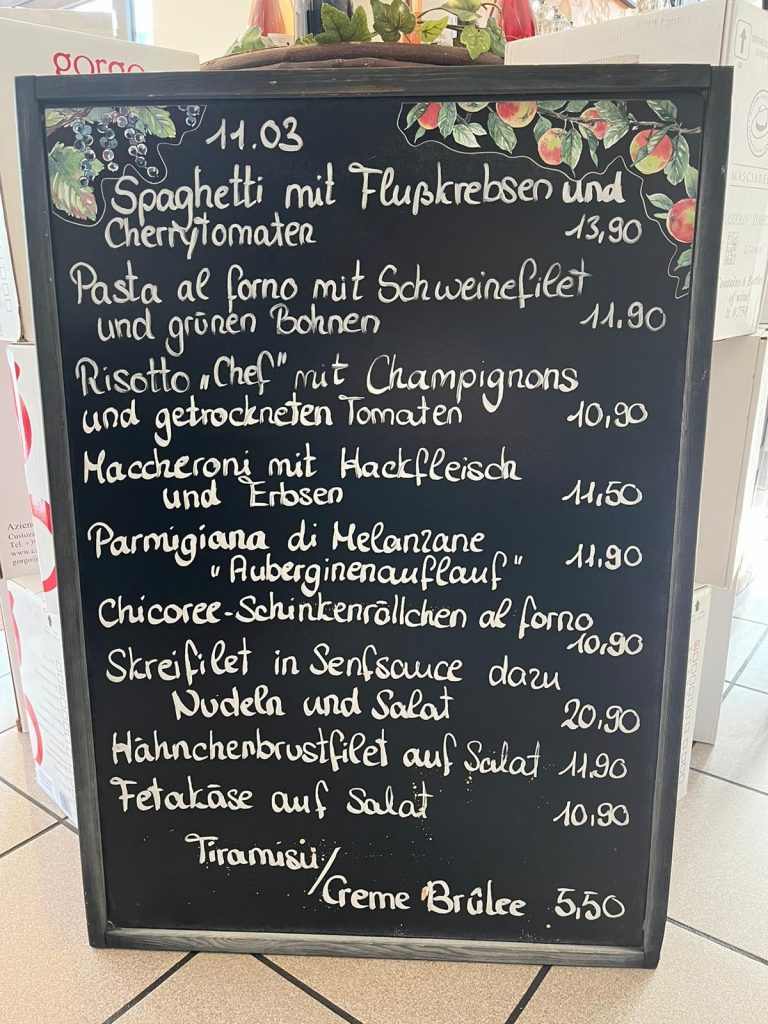 gorgo
11.03
Spaghetti mit Flußkrebsen und
Cherrytomaten 13,90
Pasta al forno mit Schweinefilet
und grünen Bohnen 11.90
Risotto „Chef" mit Champignons
und getrockneten Tomaten 10,90
Maccheroni mit Hackfleisch
und Erbsen 11,50
Parmigiana di Melanzane
"Auberginenauflauf" 11,90
Chicoree-Schinkenröllchen al forno
10,90
Skreifilet in Senfsauce dazu
Nudeln und Salat 20,90
Hähnchenbrustfilet auf Salat 11,90
Fetakäse auf Salat 10,90
Tiramisu/
Creme Brûlee 5,50
Custoza
Tel. +39
gorgo@